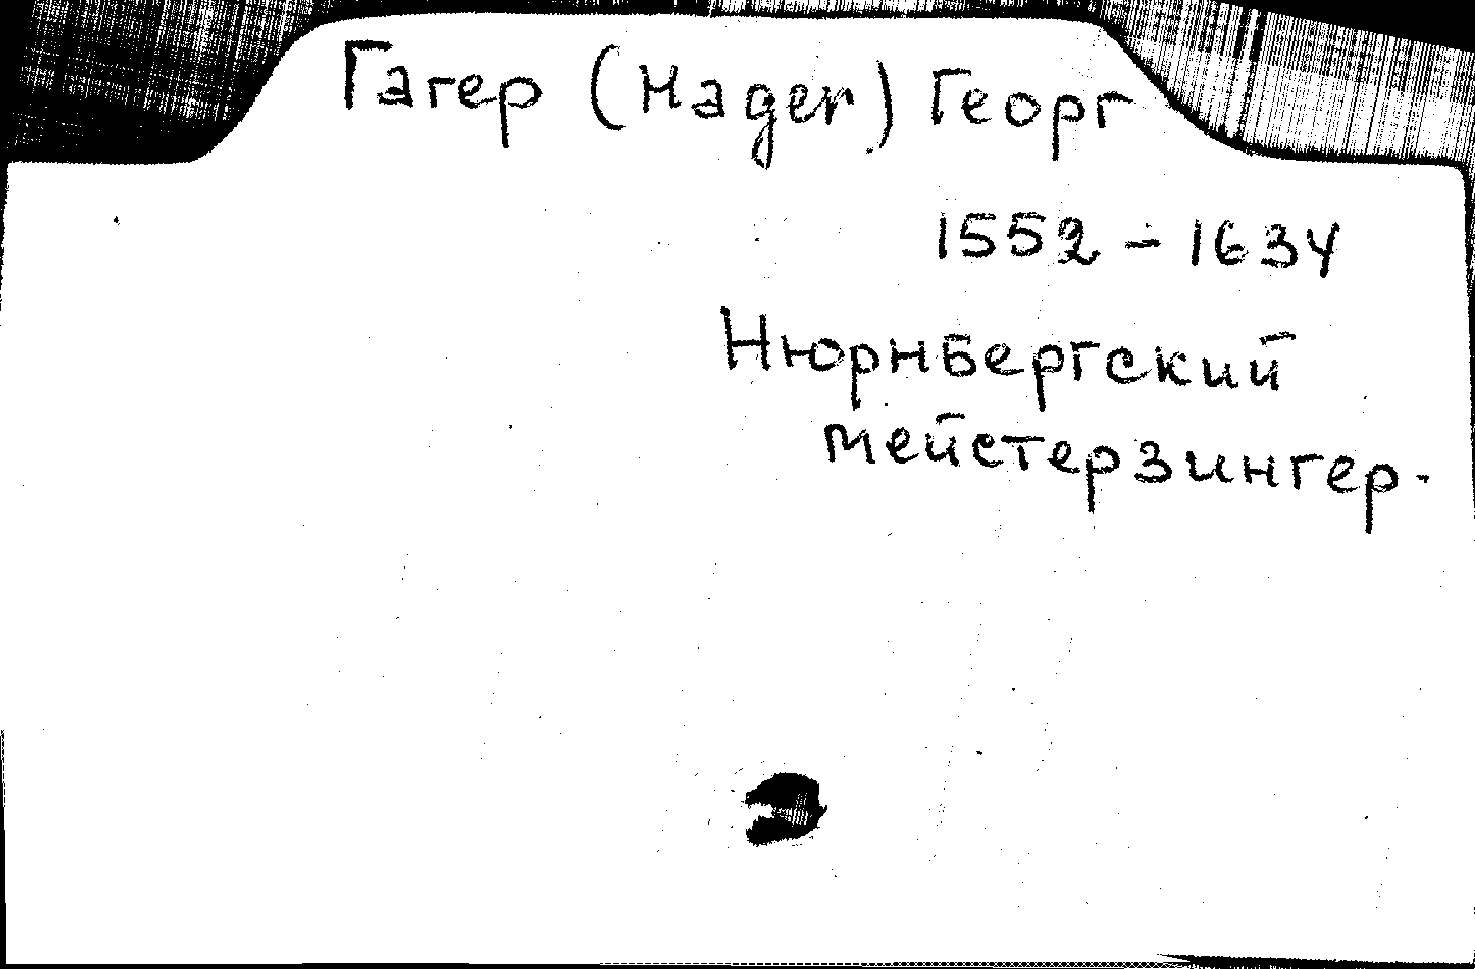 Гагер (Hager) Георг
1552 - 1634
Нюрнбергский
мейстерзингер.